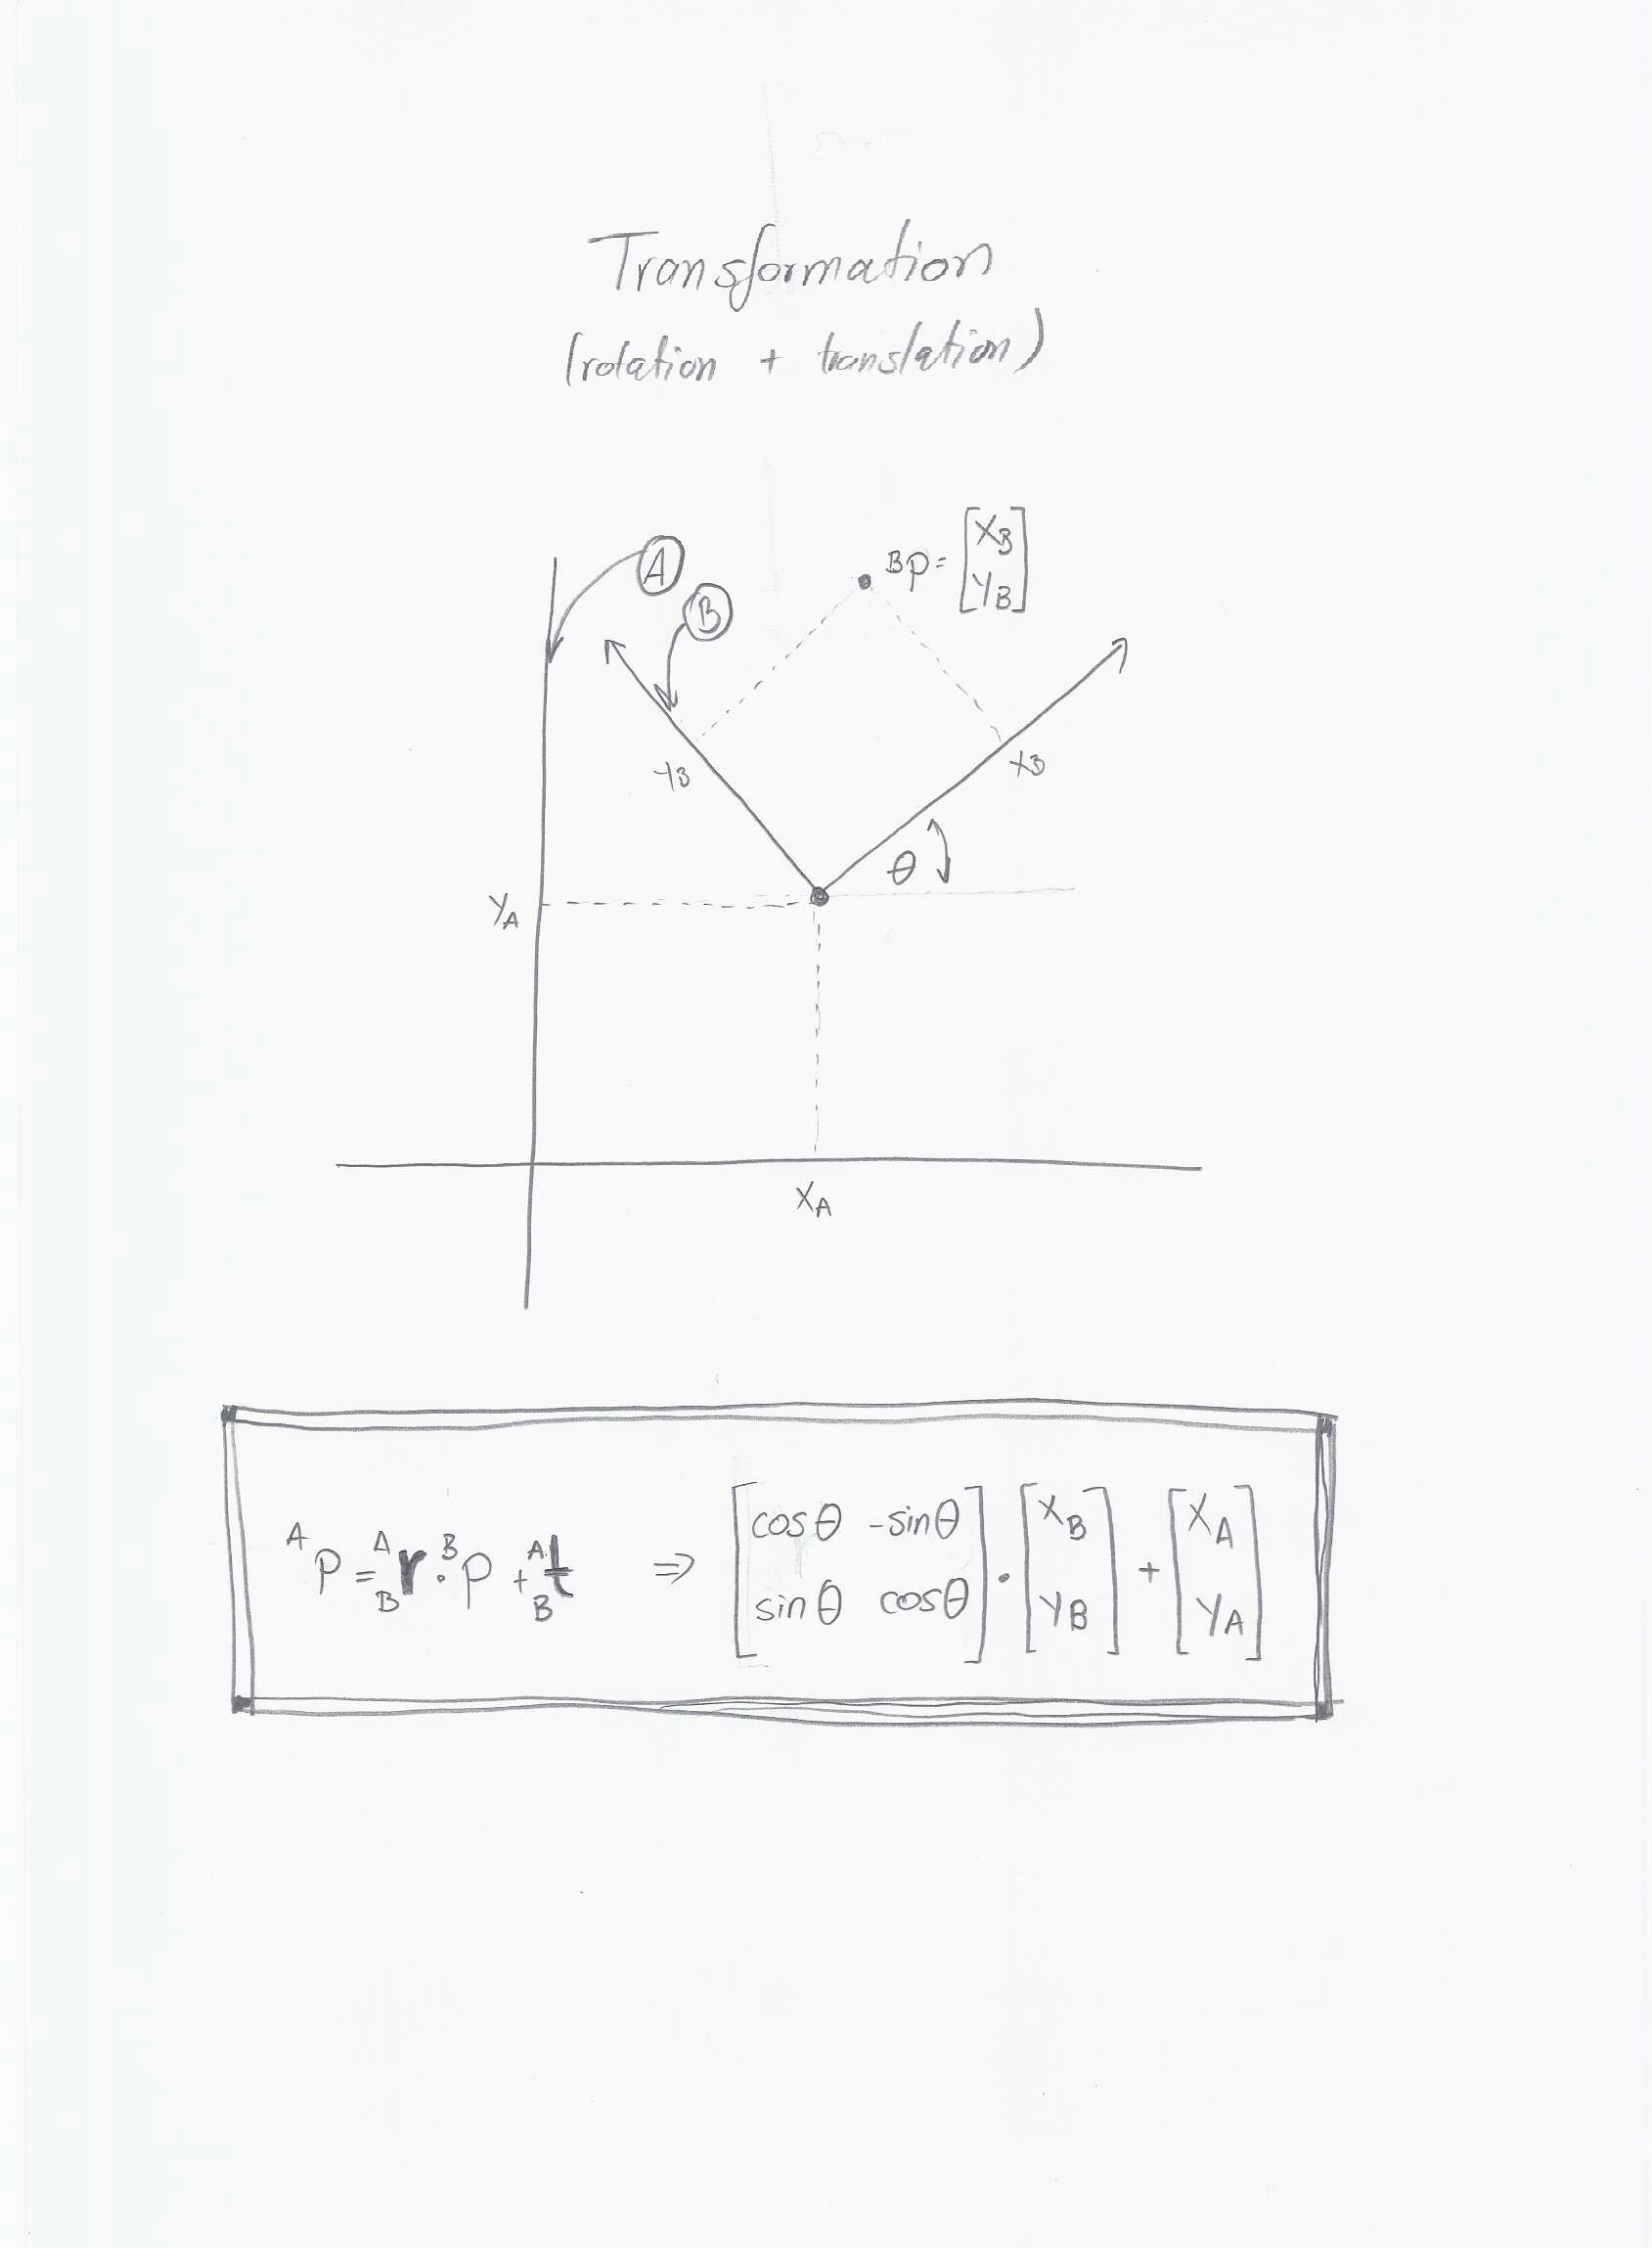 Transformation
(rotation + translation)
A
B
ᴮp = [X_B
Y_B]
Y_B
X_B
θ
Y_A
X_A
ᴬP = ᴬ_B r · ᴮp + ᴬ_B t ⇒ [cosθ -sinθ
sinθ cosθ] · [X_B
Y_B] + [X_A
Y_A]